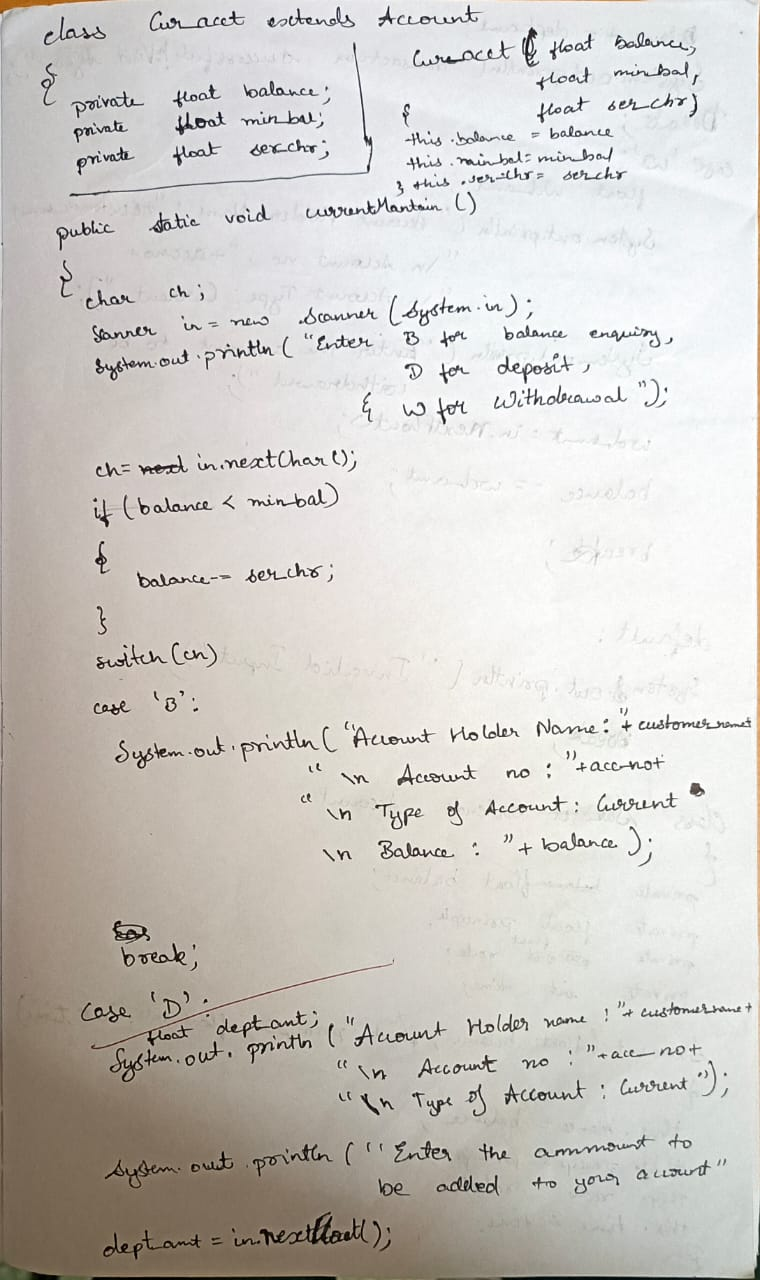 class Cur_acct extends Account
{
private float balance;
private float min_bal;
private float ser_chr;
Cur_acct ( float balance,
float min_bal,
float ser_chr)
{
this.balance = balance
this.min_bal = min_bal
} this.ser_chr = ser_chr
public static void currentMantain ()
{
char ch;
Sanner in = new Scanner (System.in);
System.out.println ( "Enter B for balance enquiry,
D for deposit,
& W for Withdrawal");
ch = in.nextChar();
if (balance < min_bal)
{
balance -= ser_chr;
}
switch (ch)
case 'B':
System.out.println ( "Account Holder Name: "+ customer_name+
"\n Account no : "+acc_no+
"\n Type of Account: Current
\n Balance : "+ balance );
break;
Case 'D':
float dept_amt;
System.out.println ("Account Holder name : "+ customer_name+
"\n Account no : "+acc_no+
"\n Type of Account : Current");
System.out.println ( "Enter the ammount to
be added to your account"
dept_amt = in.nextfloat();